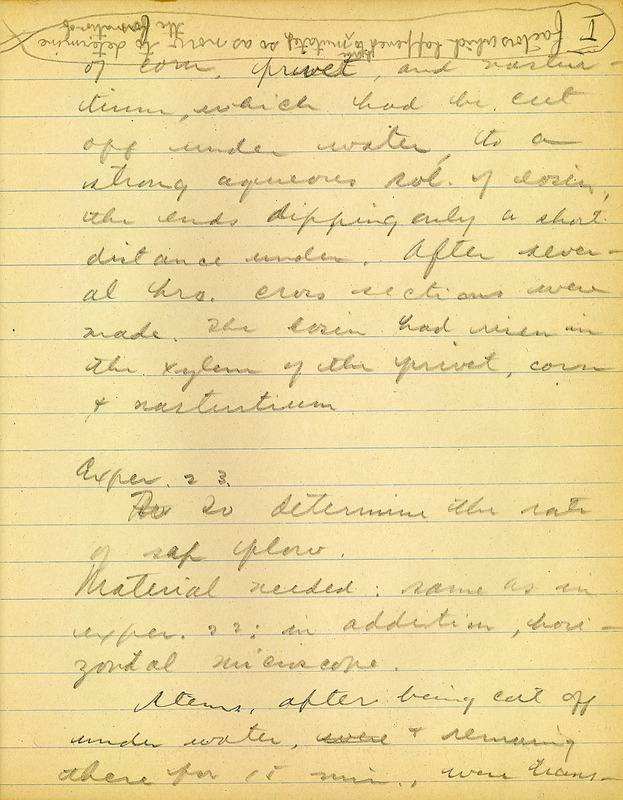 I
factors which happened to mutate so as now to determine
the formation of
of corn, privet, and nastur-
tium, which had be cut
off under water, to a
strong aqueous sol. of eosin,
the ends dipping only a short
distance under. After sever-
al hrs. cross sections were
made. The eosin had risen in
the xylem of the privet, corn
& nasturtium
Exper. 23.
To determine the rate
of sap flow.
Material needed: same as in
exper. 22; in addition, hori-
zontal microscope.
Stems, after being cut off
under water, were & remaining
there for 15 min., were trans-